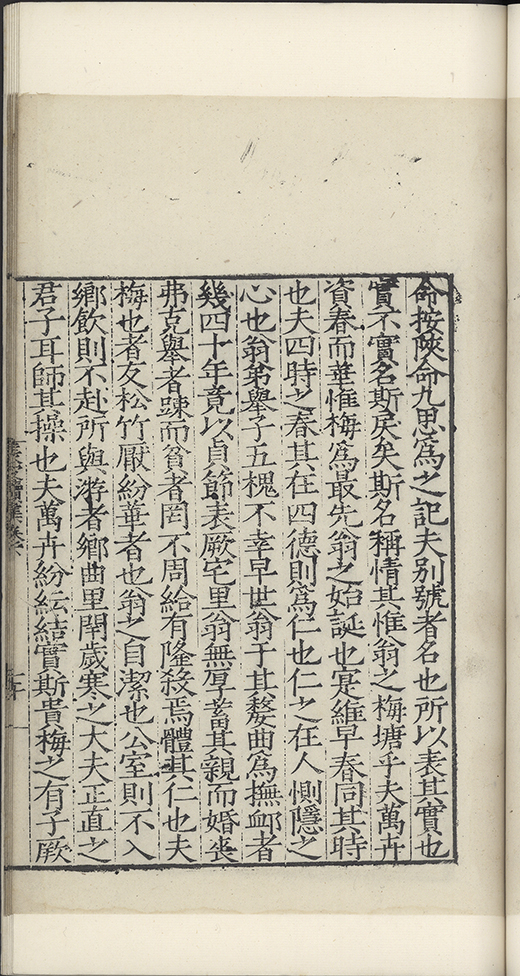 命按陝命九思爲之記夫別號者名也所以表其實也
實不實名斯戾矣斯名稱情其惟翁之梅塘乎夫萬卉
資春而華惟梅爲最先翁之始誕也寔維早春同其時
也夫四時之春其在四德則爲仁也仁之在人惻隱之
心也翁弟舉子五槐不幸早世翁于其嫠曲爲撫卹者
幾四十年竟以貞節表厥宅里翁無厚蓄其親而婚喪
弗克舉者踈而貧者罔不周給有隆殺焉體其仁也夫
梅也者友松竹厭紛華者也翁之自潔也公室則不入
鄉飲則不赴所與游者鄉曲里閈歲寒之大夫正直之
君子耳師其操也夫萬卉紛紜結實斯貴梅之有子厥